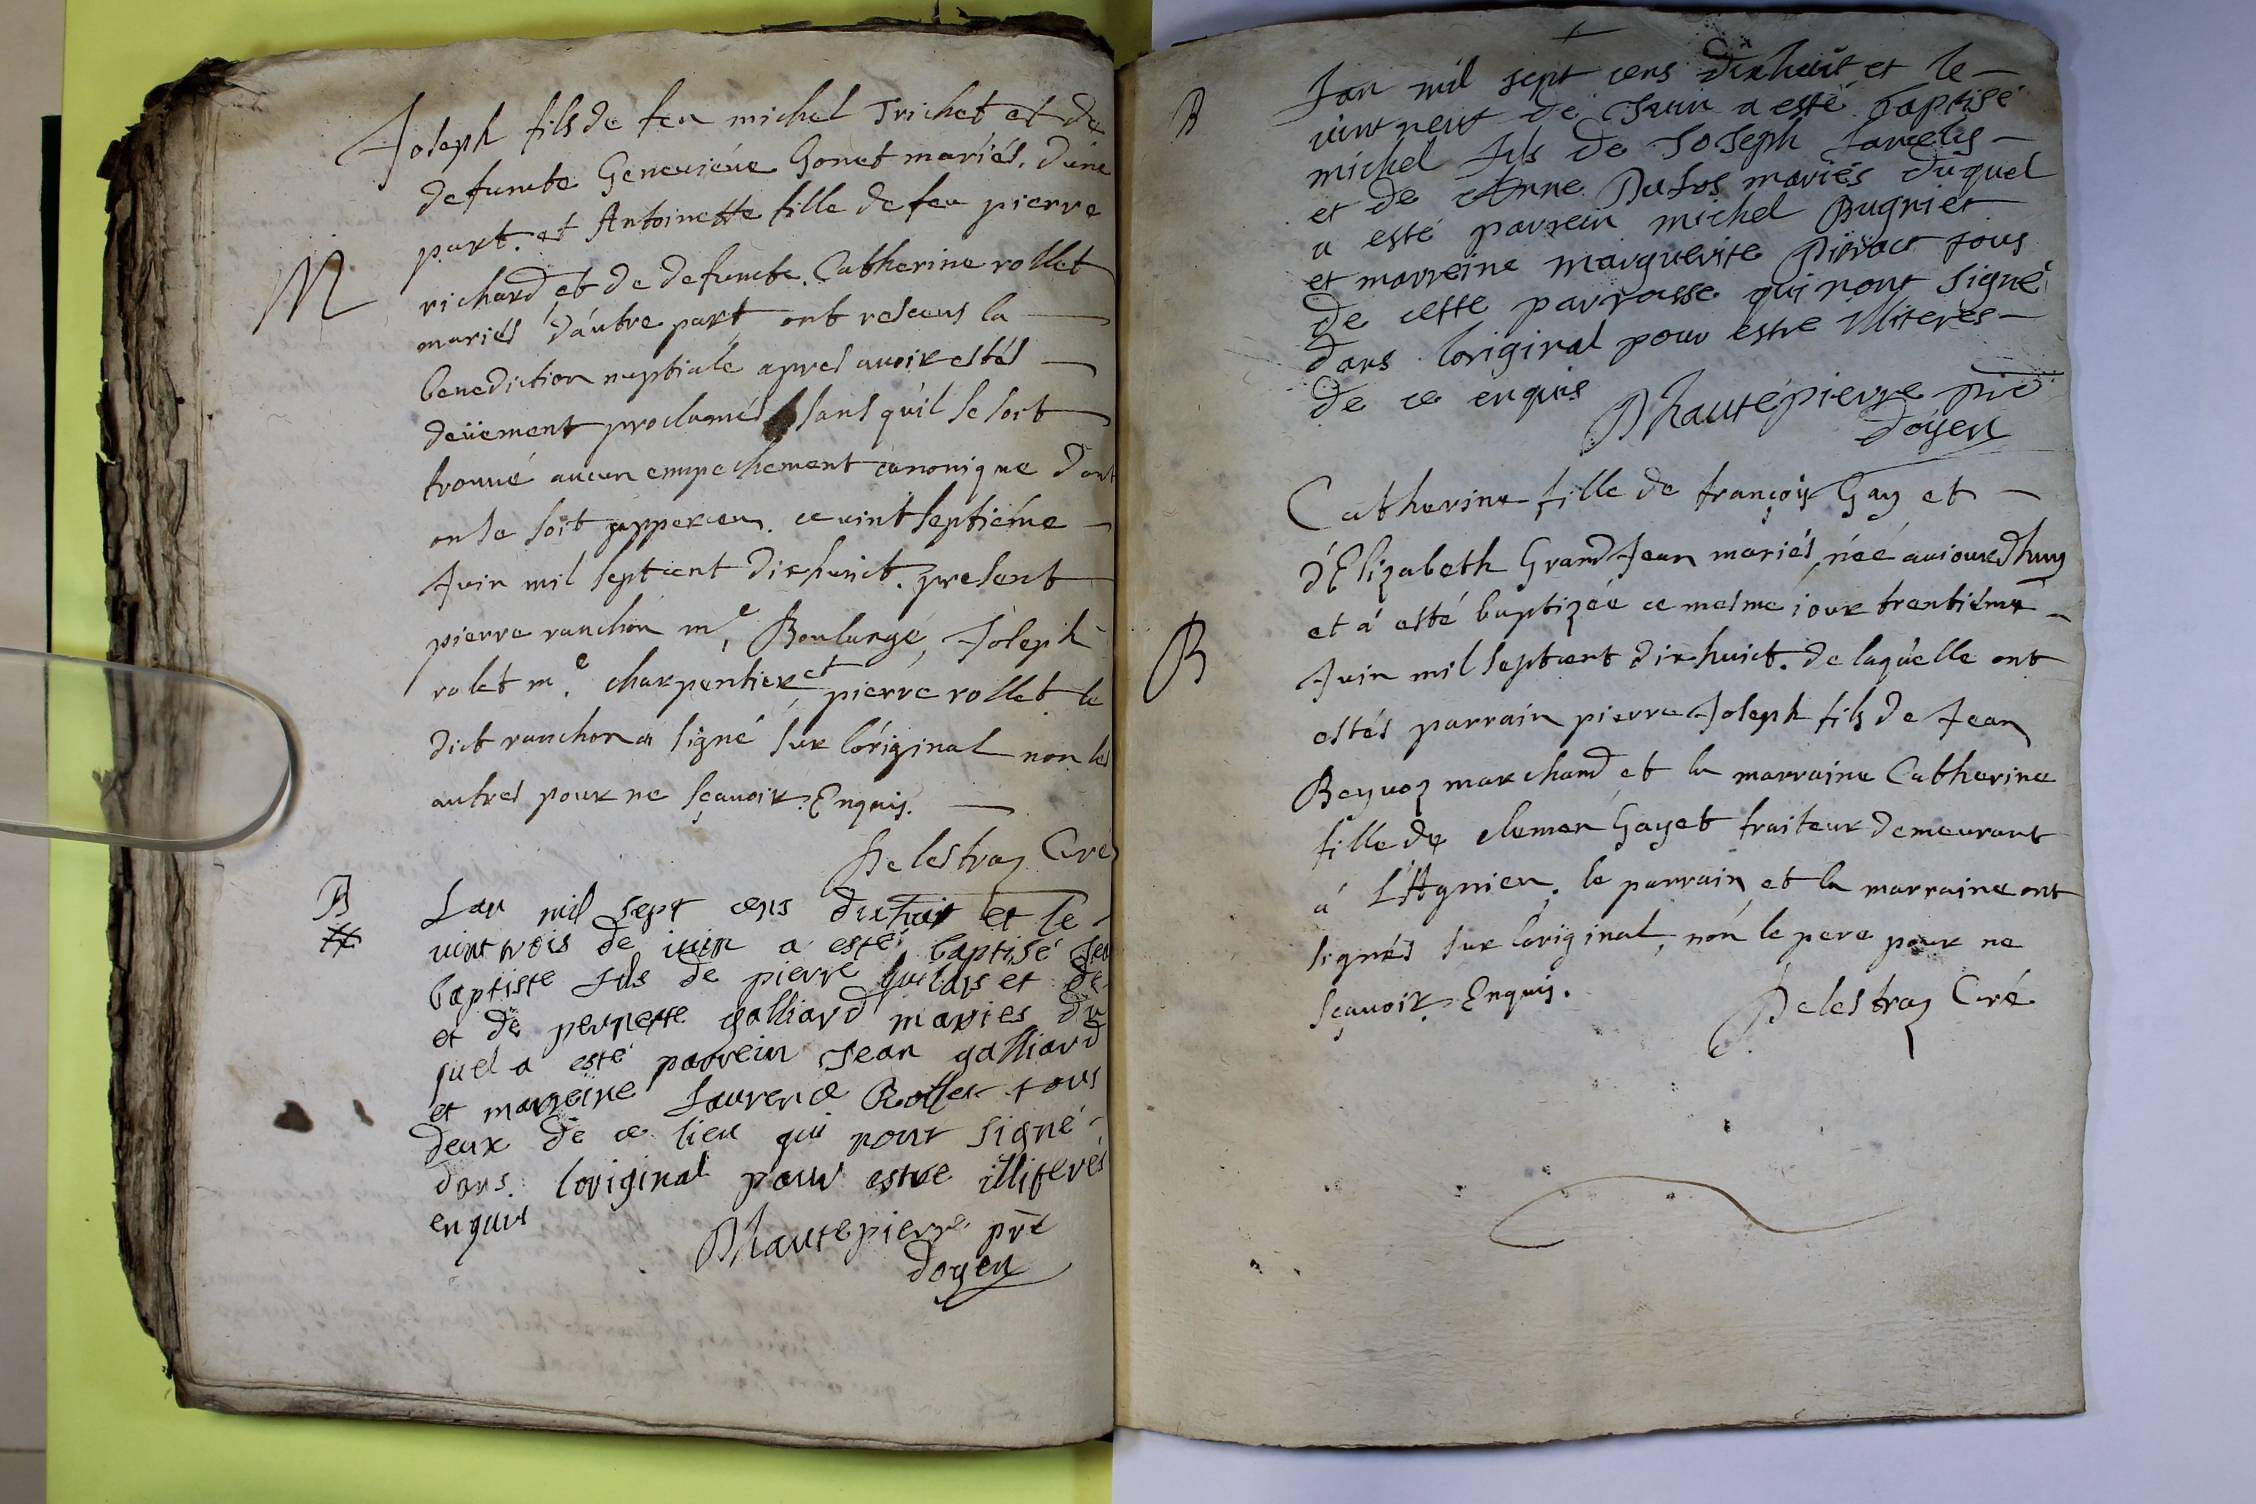 Joseph fils de feu michel Trichet et de
defuncte Geneuiéue Gonet mariés. d'une
part. et Antoinette fille de feu pierre
M
richard et de defuncte Catherine rollet
mariés d'autre part ont resceus la
benediction nuptiale apres auoir estés
deüement proclamés sans qu'il se soit
trouué aucun empechement canonique dont
on se soit apperceu. ce vint septiéme
Juin mil sept cent dix huict. present
pierre ranchon me. Boulangé, Joseph
rolet me. charpentier et pierre rollet le
dict ranchon a signé sur l'original non les
autres pour ne sçauoir. Enquis.
Delestray Curé
B
Lan mil sept cens dixhuit et le
vint trois de iuin a esté baptisé Jea
baptiste fils de pierre et de
et de pernette galliard maries du
quel a esté parrein Jean galliard
et marreine Laurence Rollet tous
deux de ce lieu qui nont signé
dans loriginal pour estre illiterés
enquis
Dhautepierre pre
doyen
B
Lan mil sept cens dixhuit et le
vint neuf de Juin a esté baptisé
michel fils de Joseph
et de Anne Dufos mariés duquel
a esté parrein michel Bugniet
et marreine marguerite tous
de cette parroisse qui nont signé
dans loriginal pour estre illiterés
de ce enquis
Dhautepierre pre
doyen
Catherine fille de françois Gay et
d'Elizabeth Grand Jean mariés, néé auiourdhuy
et a esté baptizéé ce mesme iour trentiéme
B
Juin mil sept cent dix huict. de laquelle ont
estés parrain pierre Joseph fils de Jean
marchand et la marraine Catherine
fille de clemen Gayet traiteur demeurant
á L'Agnieu. le parrain et la marraine ont
signés sur l'original, nón le pere pour ne
sçauoir. Enquis.
Delestray Curé